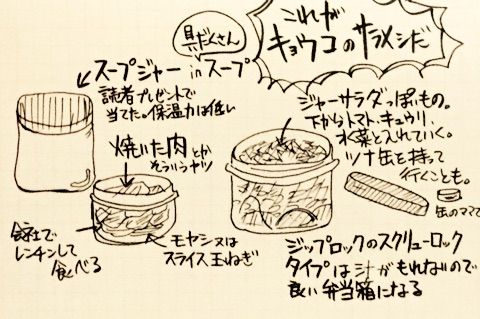 これが
キョウコのサラメシだ
具だくさん
スープジャー in スープ
読者プレゼントで
当てた。保温力は低い
焼いた肉とか
そういうヤツ
ジャーサラダっぽいもの。
下からトマト、キュウリ、
水菜と入れていく。
ツナ缶を持って
行くことも。
缶のママ
会社で
レンチンして
食べる
モヤシ又は
スライス玉ねぎ
ジップロックのスクリューロック
タイプは汁がもれないので
良い弁当箱になる